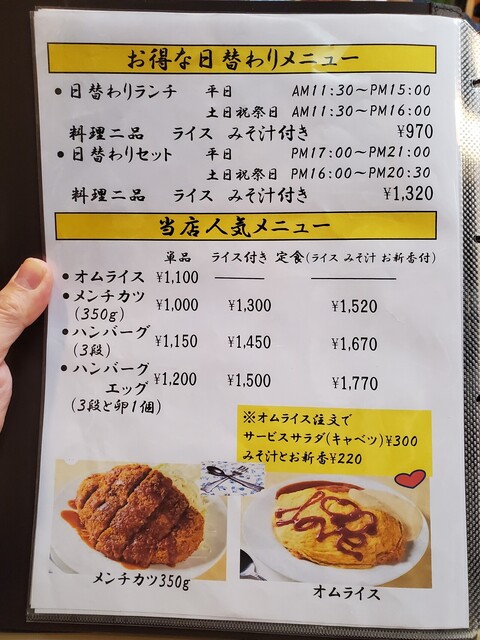 お得な日替わりメニュー
● 日替わりランチ 平日 AM11:30～PM15:00
土日祝祭日 AM11:30～PM16:00
料理二品 ライス みそ汁付き ¥970
● 日替わりセット 平日 PM17:00～PM21:00
土日祝祭日 PM16:00～PM20:30
料理二品 ライス みそ汁付き ¥1,320
当店人気メニュー
単品 ライス付き 定食(ライス みそ汁 お新香付)
● オムライス ¥1,100
● メンチカツ ¥1,000 ¥1,300 ¥1,520
(350g)
● ハンバーグ ¥1,150 ¥1,450 ¥1,670
(3段)
● ハンバーグ
エッグ ¥1,200 ¥1,500 ¥1,770
(3段と卵1個)
※オムライス注文で
サービスサラダ(キャベツ)¥300
みそ汁とお新香¥220
Love
メンチカツ350g
オムライス